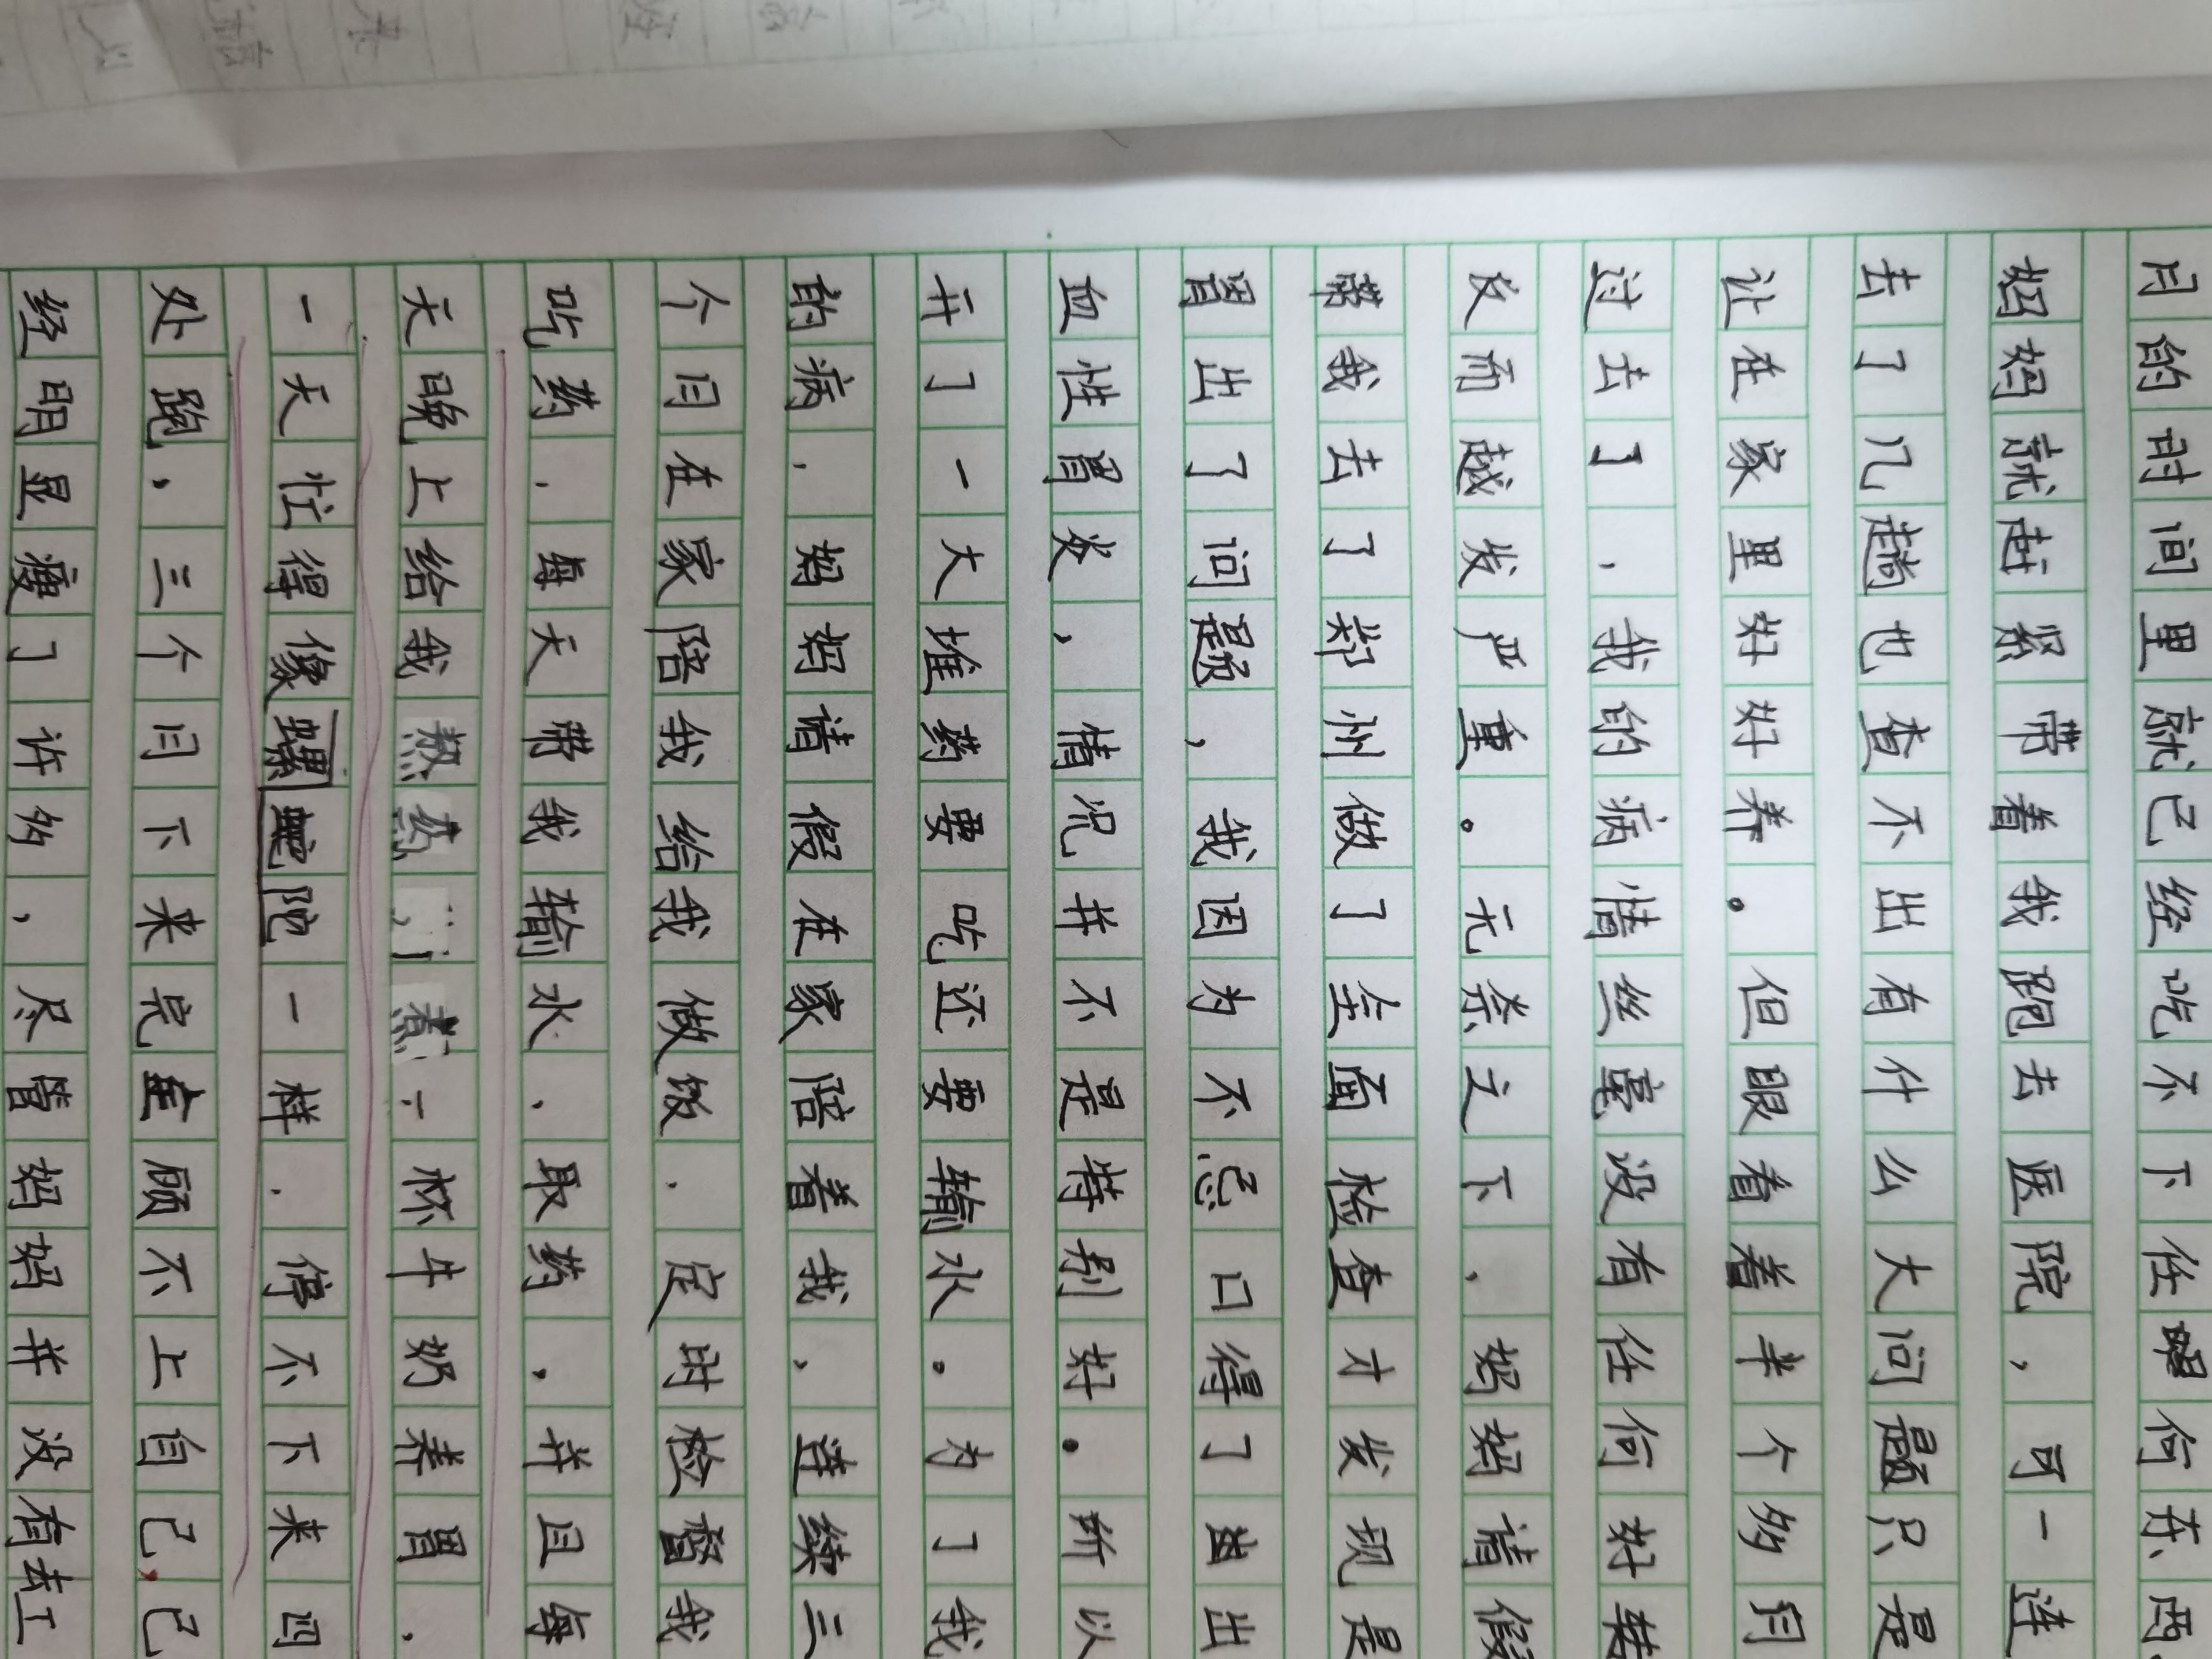 月的时间里就已经吃不下任何东西，
妈妈就赶紧带着我跑去医院，可一连
去了几趟也查不出有什么大问题只是
让在家里好好养。但眼看着半个多月
过去了，我的病情丝毫没有任何好转
反而越发严重。无奈之下，妈妈请假
带我去了郑州做了全面检查才发现是
胃出了问题，我因为不忌口得了出
血性胃炎，情况并不是特别好。所以
开了一大堆药要吃还要输水。为了我
的病，妈妈请假在家陪着我，连续三
个月在家陪我给我做饭，定时检督我
吃药，每天带我输水，取药，并且每
天晚上给我煮一杯牛奶养胃，
一天忙得像陀一样，停不下来四
处跑，三个月下来完全顾不上自己，已
经明显瘦了许多，尽管妈妈并没有去工